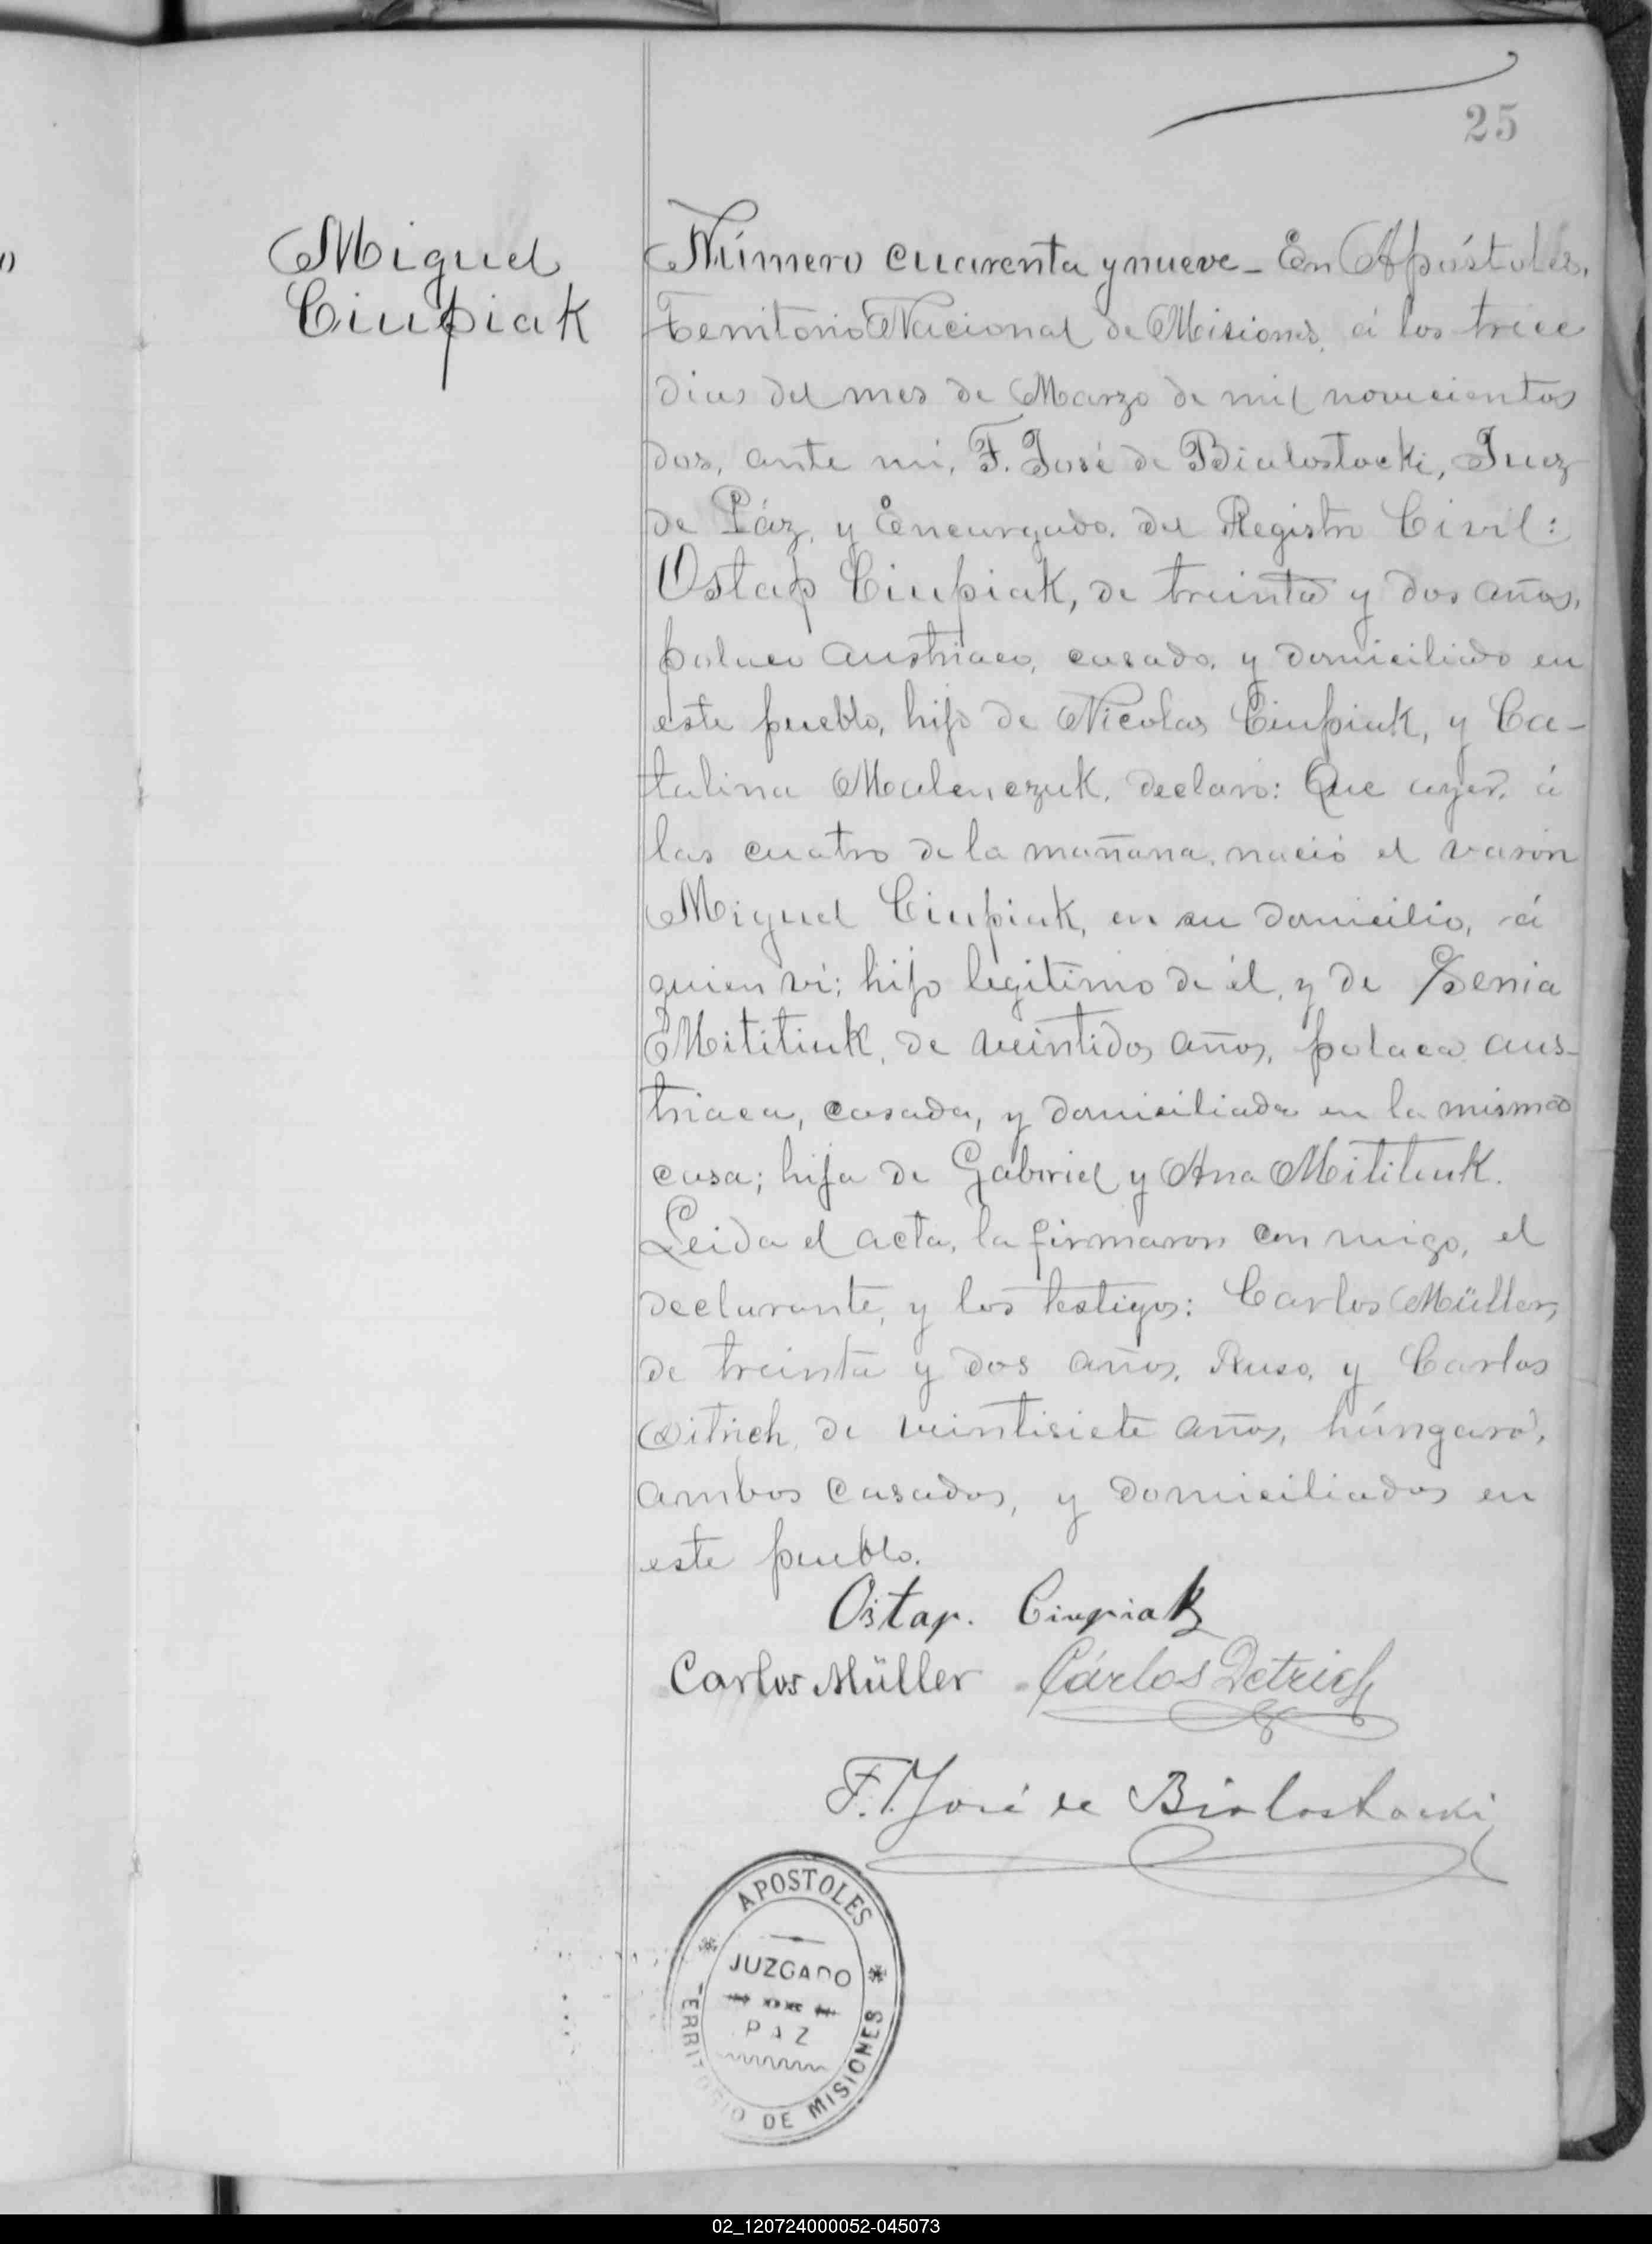 25
Miguel
Ciupiak
Número cuarenta y nueve - En Apóstoles,
Territorio Nacional de Misiones, á los trece
dias del mes de Marzo de mil novecientos
dos, ante mi, F. José de Bialostocki, Juez
de Páz, y Encargado del Registro Civil:
Ostap Ciupiak, de treinta y dos años,
polaco austriaco, casado, y domiciliado en
este pueblo, hijo de Nicolas Ciupiak, y Ca-
talina Malenczuk, declaró: Que ayer, á
las cuatro de la mañana, nació el varón
Miguel Ciupiak, en su domicilio, á
quien ví; hijo legítimo de él, y de Xenia
Mititiuk, de veintidos años, polaca aus-
triaca, casada, y domiciliada en la misma
casa; hija de Gabriel y Ana Mititiuk.
Leida el acta, la firmaron con migo, el
declarante, y los testigos: Carlos Müller,
de treinta y dos años, Ruso, y Carlos
Ditrich, de veintisiete años, húngaro,
ambos casados, y domiciliados en
este pueblo.
Ostap. Ciupiak
Carlos Müller Cárlos Detrich
F. José de Bialostocki
APOSTOLES
JUZGADO
PAZ
TERRITORIO DE MISIONES
02_120724000052-045073